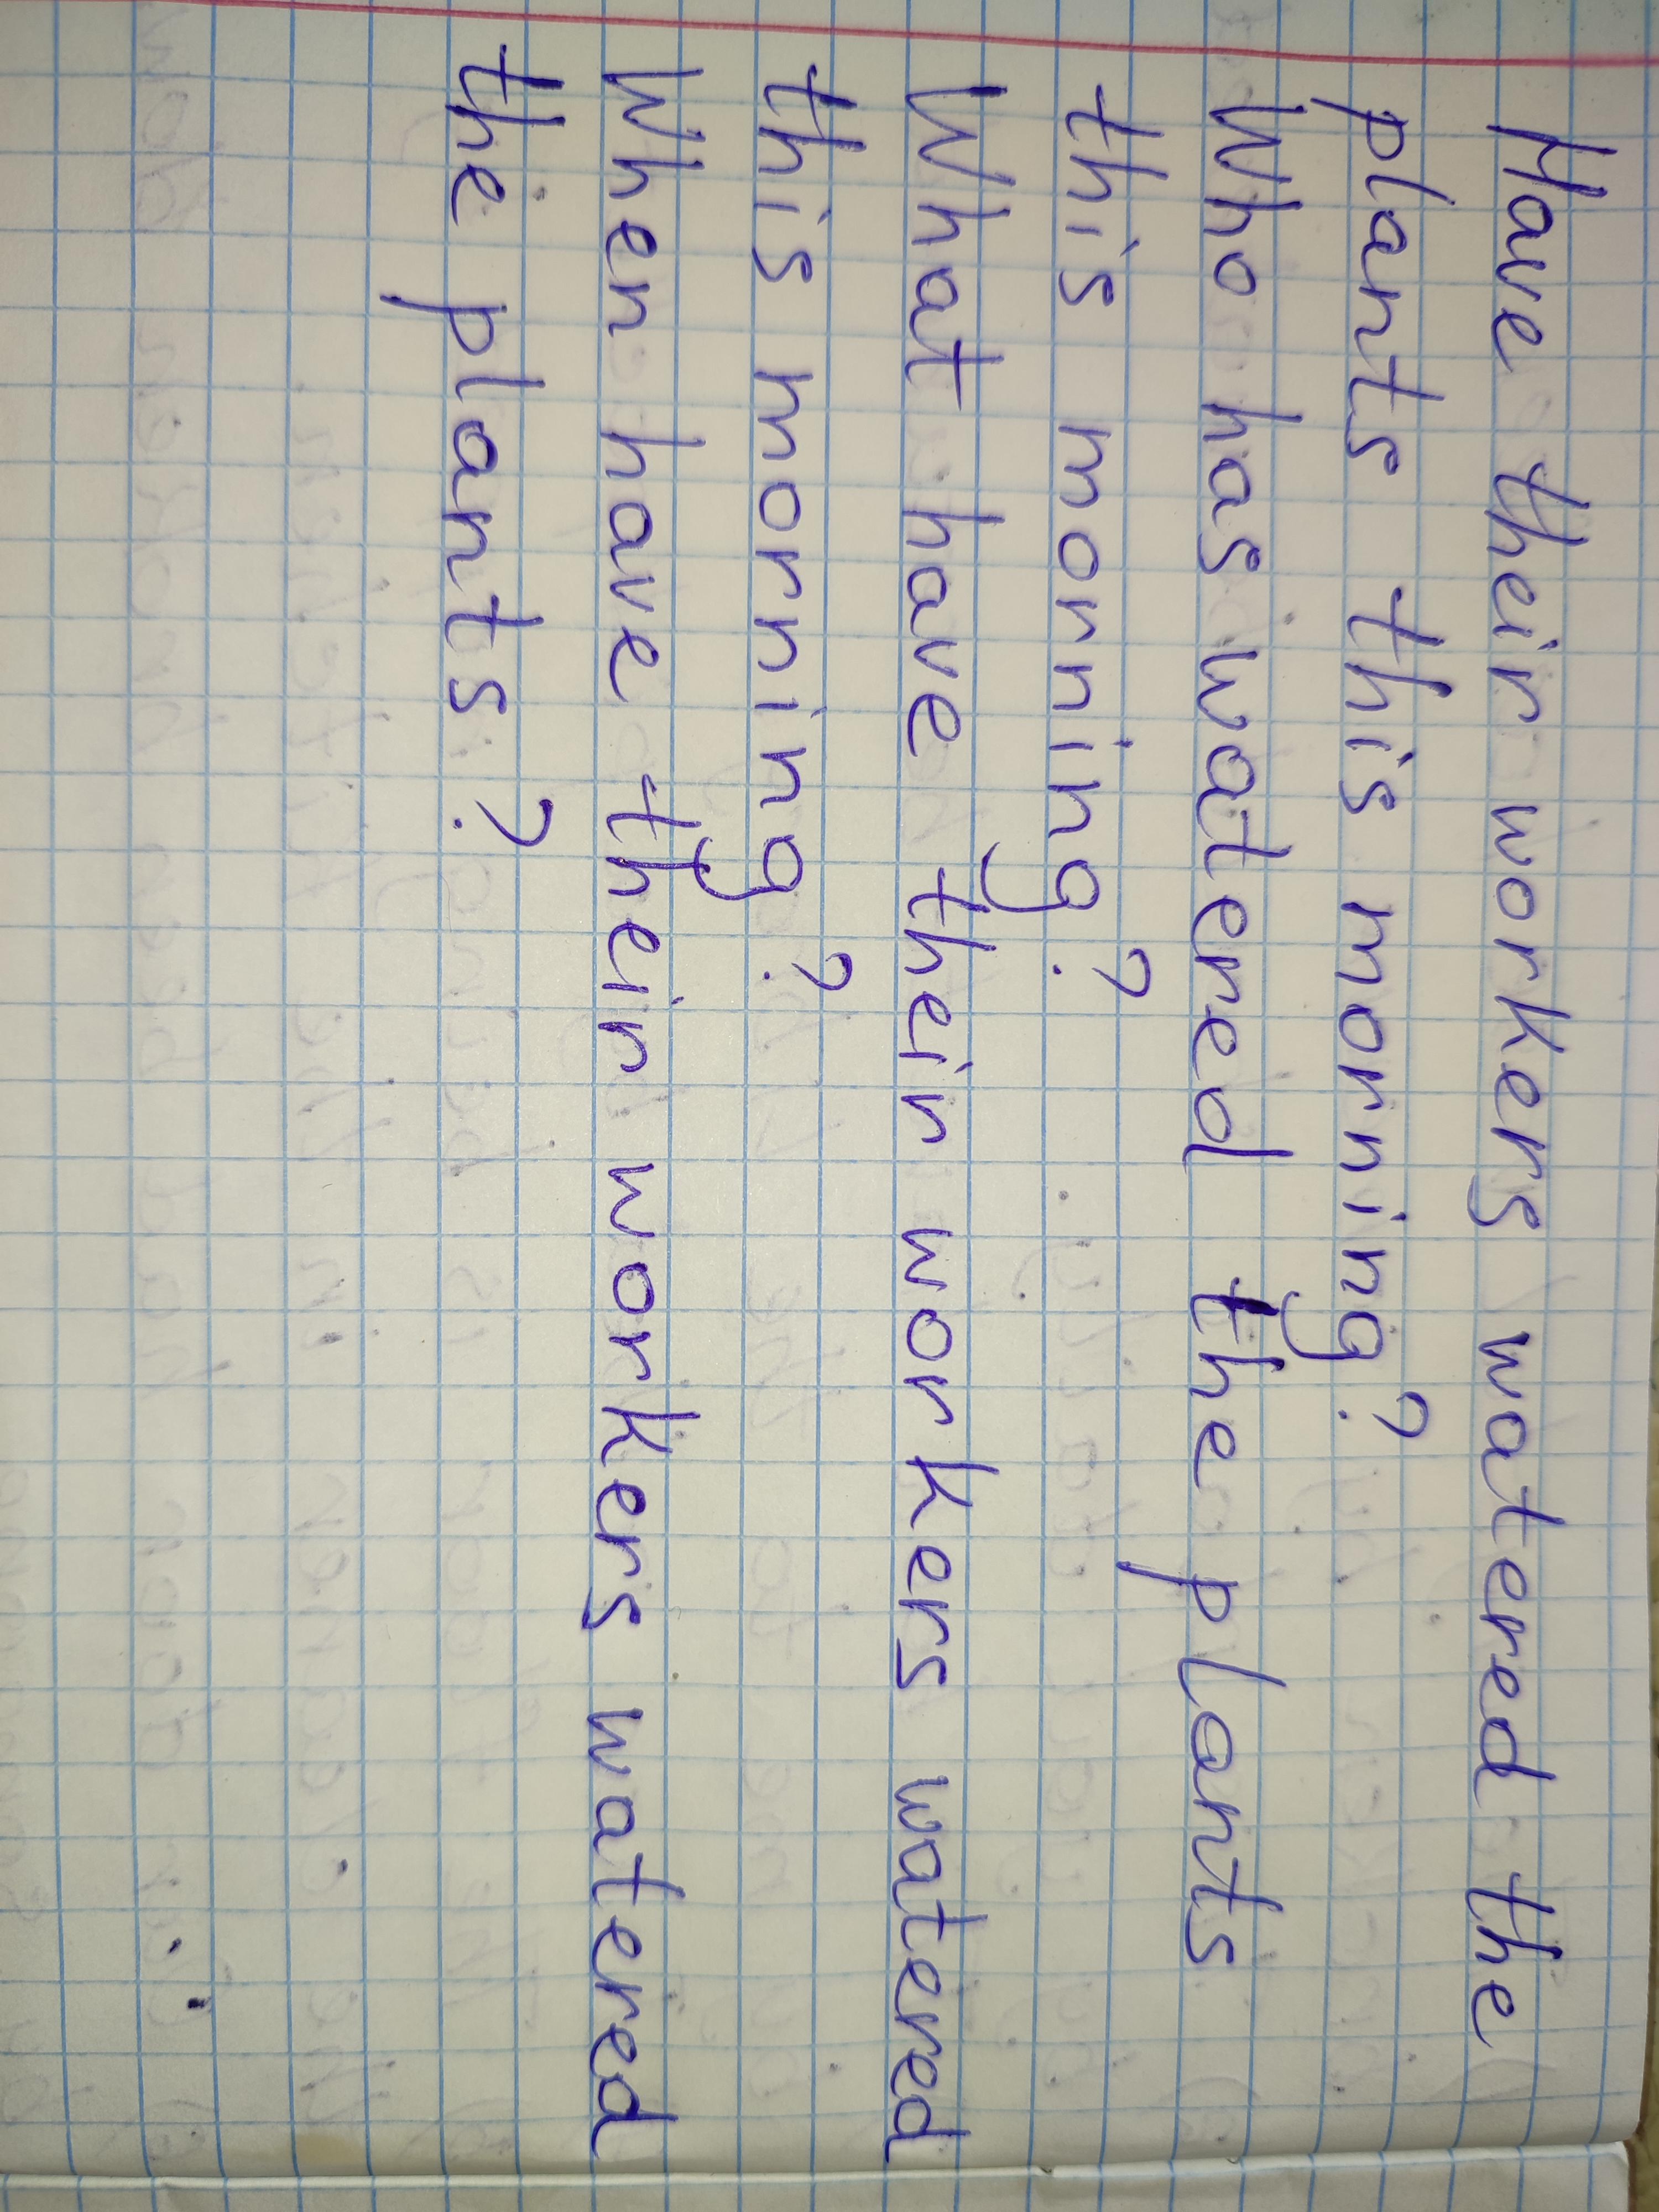 Have their workers watered the
plants this morning?
Who has watered the plants
this morning?
What have their workers watered
this morning?
When have their workers watered
the plants?